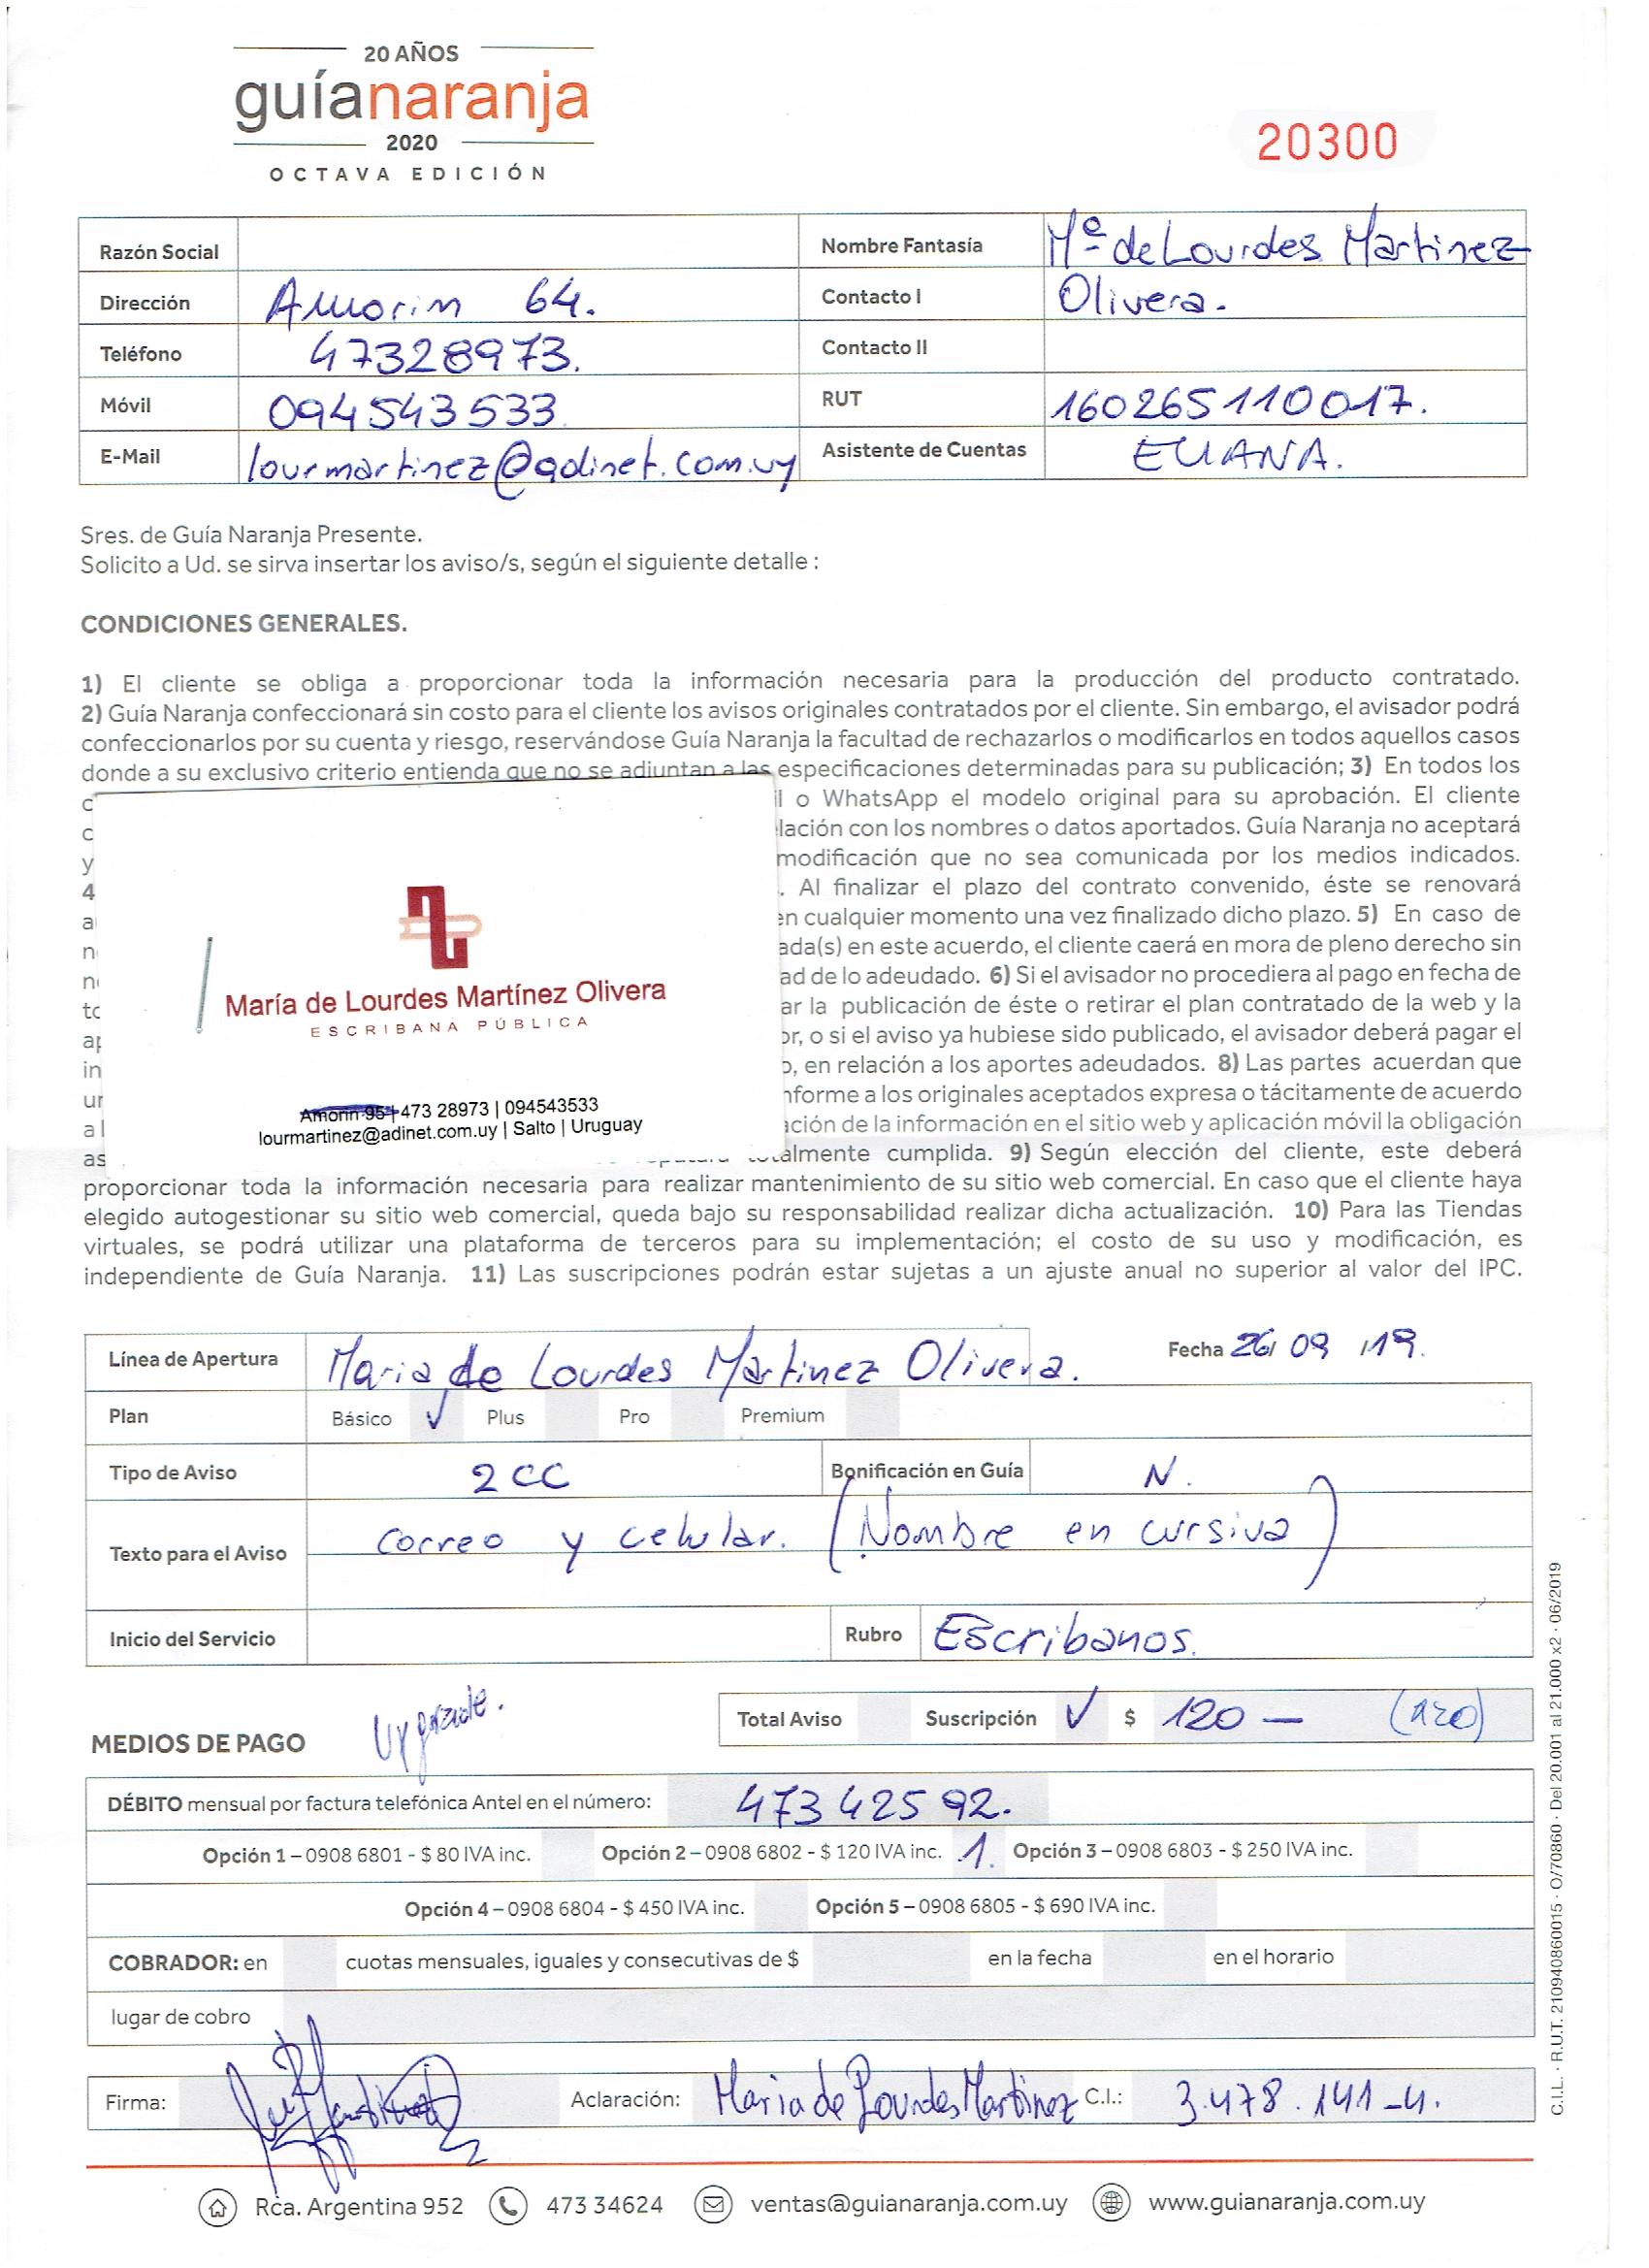 20 AÑOS
guíanaranja
2020
OCTAVA EDICIÓN
20300
Razón Social
Nombre Fantasía Mª de Lourdes Martinez
Dirección Amorim 64.
Contacto I Olivera.
Teléfono 47328973.
Contacto II
Móvil 094543533
RUT 160265110017.
E-Mail lourmartinez@adinet.com.uy
Asistente de Cuentas ELIANA.
Sres. de Guía Naranja Presente.
Solicito a Ud. se sirva insertar los aviso/s, según el siguiente detalle :
CONDICIONES GENERALES.
1) El cliente se obliga a proporcionar toda la información necesaria para la producción del producto contratado.
2) Guía Naranja confeccionará sin costo para el cliente los avisos originales contratados por el cliente. Sin embargo, el avisador podrá
confeccionarlos por su cuenta y riesgo, reservándose Guía Naranja la facultad de rechazarlos o modificarlos en todos aquellos casos
donde a su exclusivo criterio entienda que no se adjuntan a las especificaciones determinadas para su publicación; 3) En todos los
o WhatsApp el modelo original para su aprobación. El cliente
lación con los nombres o datos aportados. Guía Naranja no aceptará
y modificación que no sea comunicada por los medios indicados.
4 . Al finalizar el plazo del contrato convenido, éste se renovará
en cualquier momento una vez finalizado dicho plazo. 5) En caso de
ada(s) en este acuerdo, el cliente caerá en mora de pleno derecho sin
ad de lo adeudado. 6) Si el avisador no procediera al pago en fecha de
ar la publicación de éste o retirar el plan contratado de la web y la
or, o si el aviso ya hubiese sido publicado, el avisador deberá pagar el
o, en relación a los aportes adeudados. 8) Las partes acuerdan que
nforme a los originales aceptados expresa o tácitamente de acuerdo
ación de la información en el sitio web y aplicación móvil la obligación
almente cumplida. 9) Según elección del cliente, este deberá
proporcionar toda la información necesaria para realizar mantenimiento de su sitio web comercial. En caso que el cliente haya
elegido autogestionar su sitio web comercial, queda bajo su responsabilidad realizar dicha actualización. 10) Para las Tiendas
virtuales, se podrá utilizar una plataforma de terceros para su implementación; el costo de su uso y modificación, es
independiente de Guía Naranja. 11) Las suscripciones podrán estar sujetas a un ajuste anual no superior al valor del IPC.
María de Lourdes Martínez Olivera
ESCRIBANA PÚBLICA
Amorin 95 | 473 28973 | 094543533
lourmartinez@adinet.com.uy | Salto | Uruguay
Línea de Apertura Maria de Lourdes Martinez Olivera.
Fecha 26/ 09 /19.
Plan Básico ✓ Plus Pro Premium
Tipo de Aviso 2 CC Bonificación en Guía N.
Texto para el Aviso Correo y celular. (Nombre en cursiva)
Inicio del Servicio Rubro Escribanos.
Upgrade.
Total Aviso Suscripción ✓ $ 120 — (120)
MEDIOS DE PAGO
DÉBITO mensual por factura telefónica Antel en el número: 473 42592.
Opción 1 – 0908 6801 - $ 80 IVA inc. Opción 2 – 0908 6802 - $ 120 IVA inc. 1. Opción 3 – 0908 6803 - $ 250 IVA inc.
Opción 4 – 0908 6804 - $ 450 IVA inc. Opción 5 – 0908 6805 - $ 690 IVA inc.
COBRADOR: en cuotas mensuales, iguales y consecutivas de $ en la fecha en el horario
lugar de cobro
Firma: Aclaración: Maria de Lourdes Martinez C.I.: 3.478.141-4.
Rca. Argentina 952 473 34624 ventas@guianaranja.com.uy www.guianaranja.com.uy
C.I.L. · R.U.T. 210940860015 · O/70860 · Del 20.001 al 21.000 x2 · 06/2019